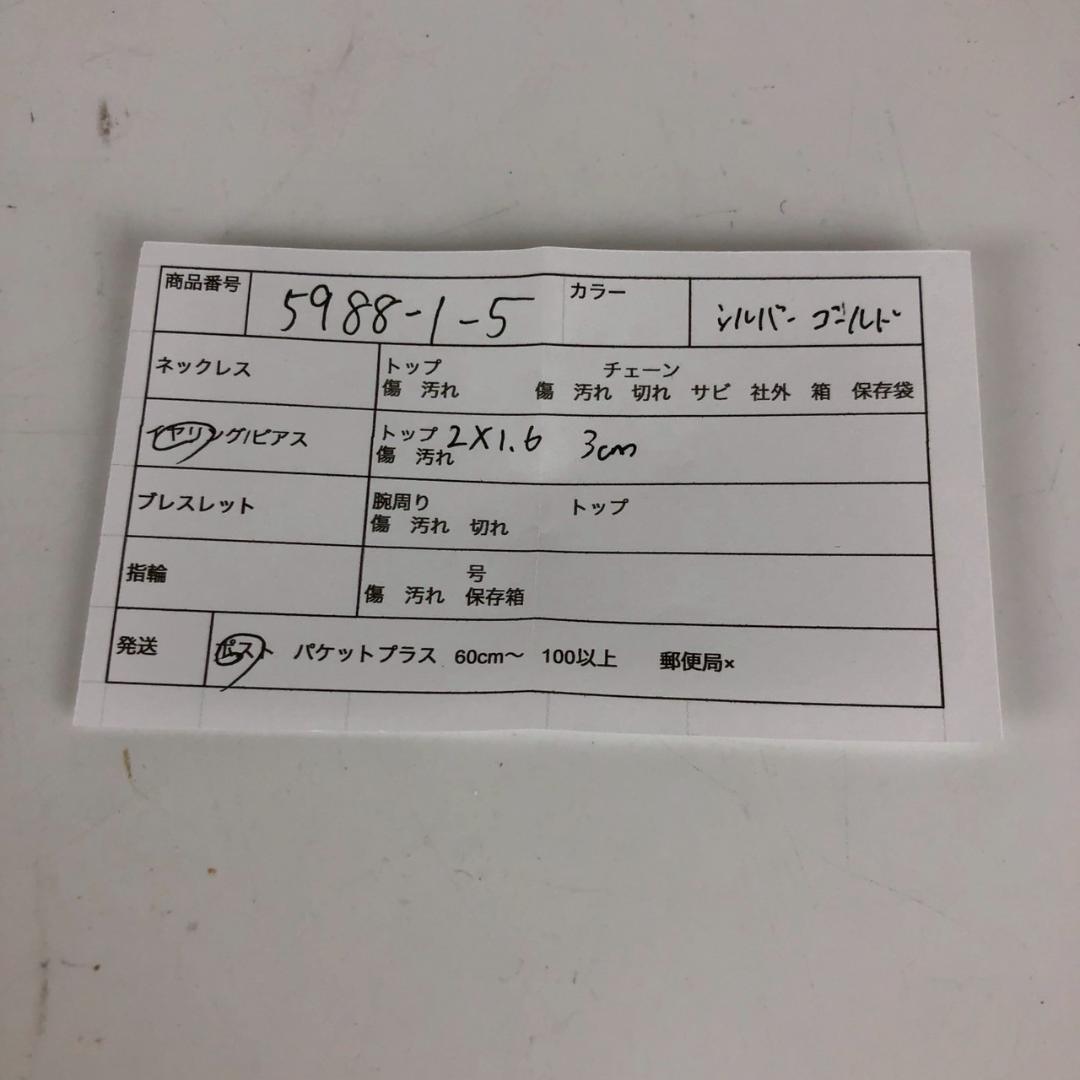 商品番号 5988-1-5 カラー シルバー ゴールド
ネックレス トップ チェーン
傷 汚れ 傷 汚れ 切れ サビ 社外 箱 保存袋
イヤリング/ピアス トップ 2×1.6 3cm
傷 汚れ
ブレスレット 腕周り トップ
傷 汚れ 切れ
指輪 号
傷 汚れ 保存箱
発送 ポスト パケットプラス 60cm〜 100以上 郵便局×